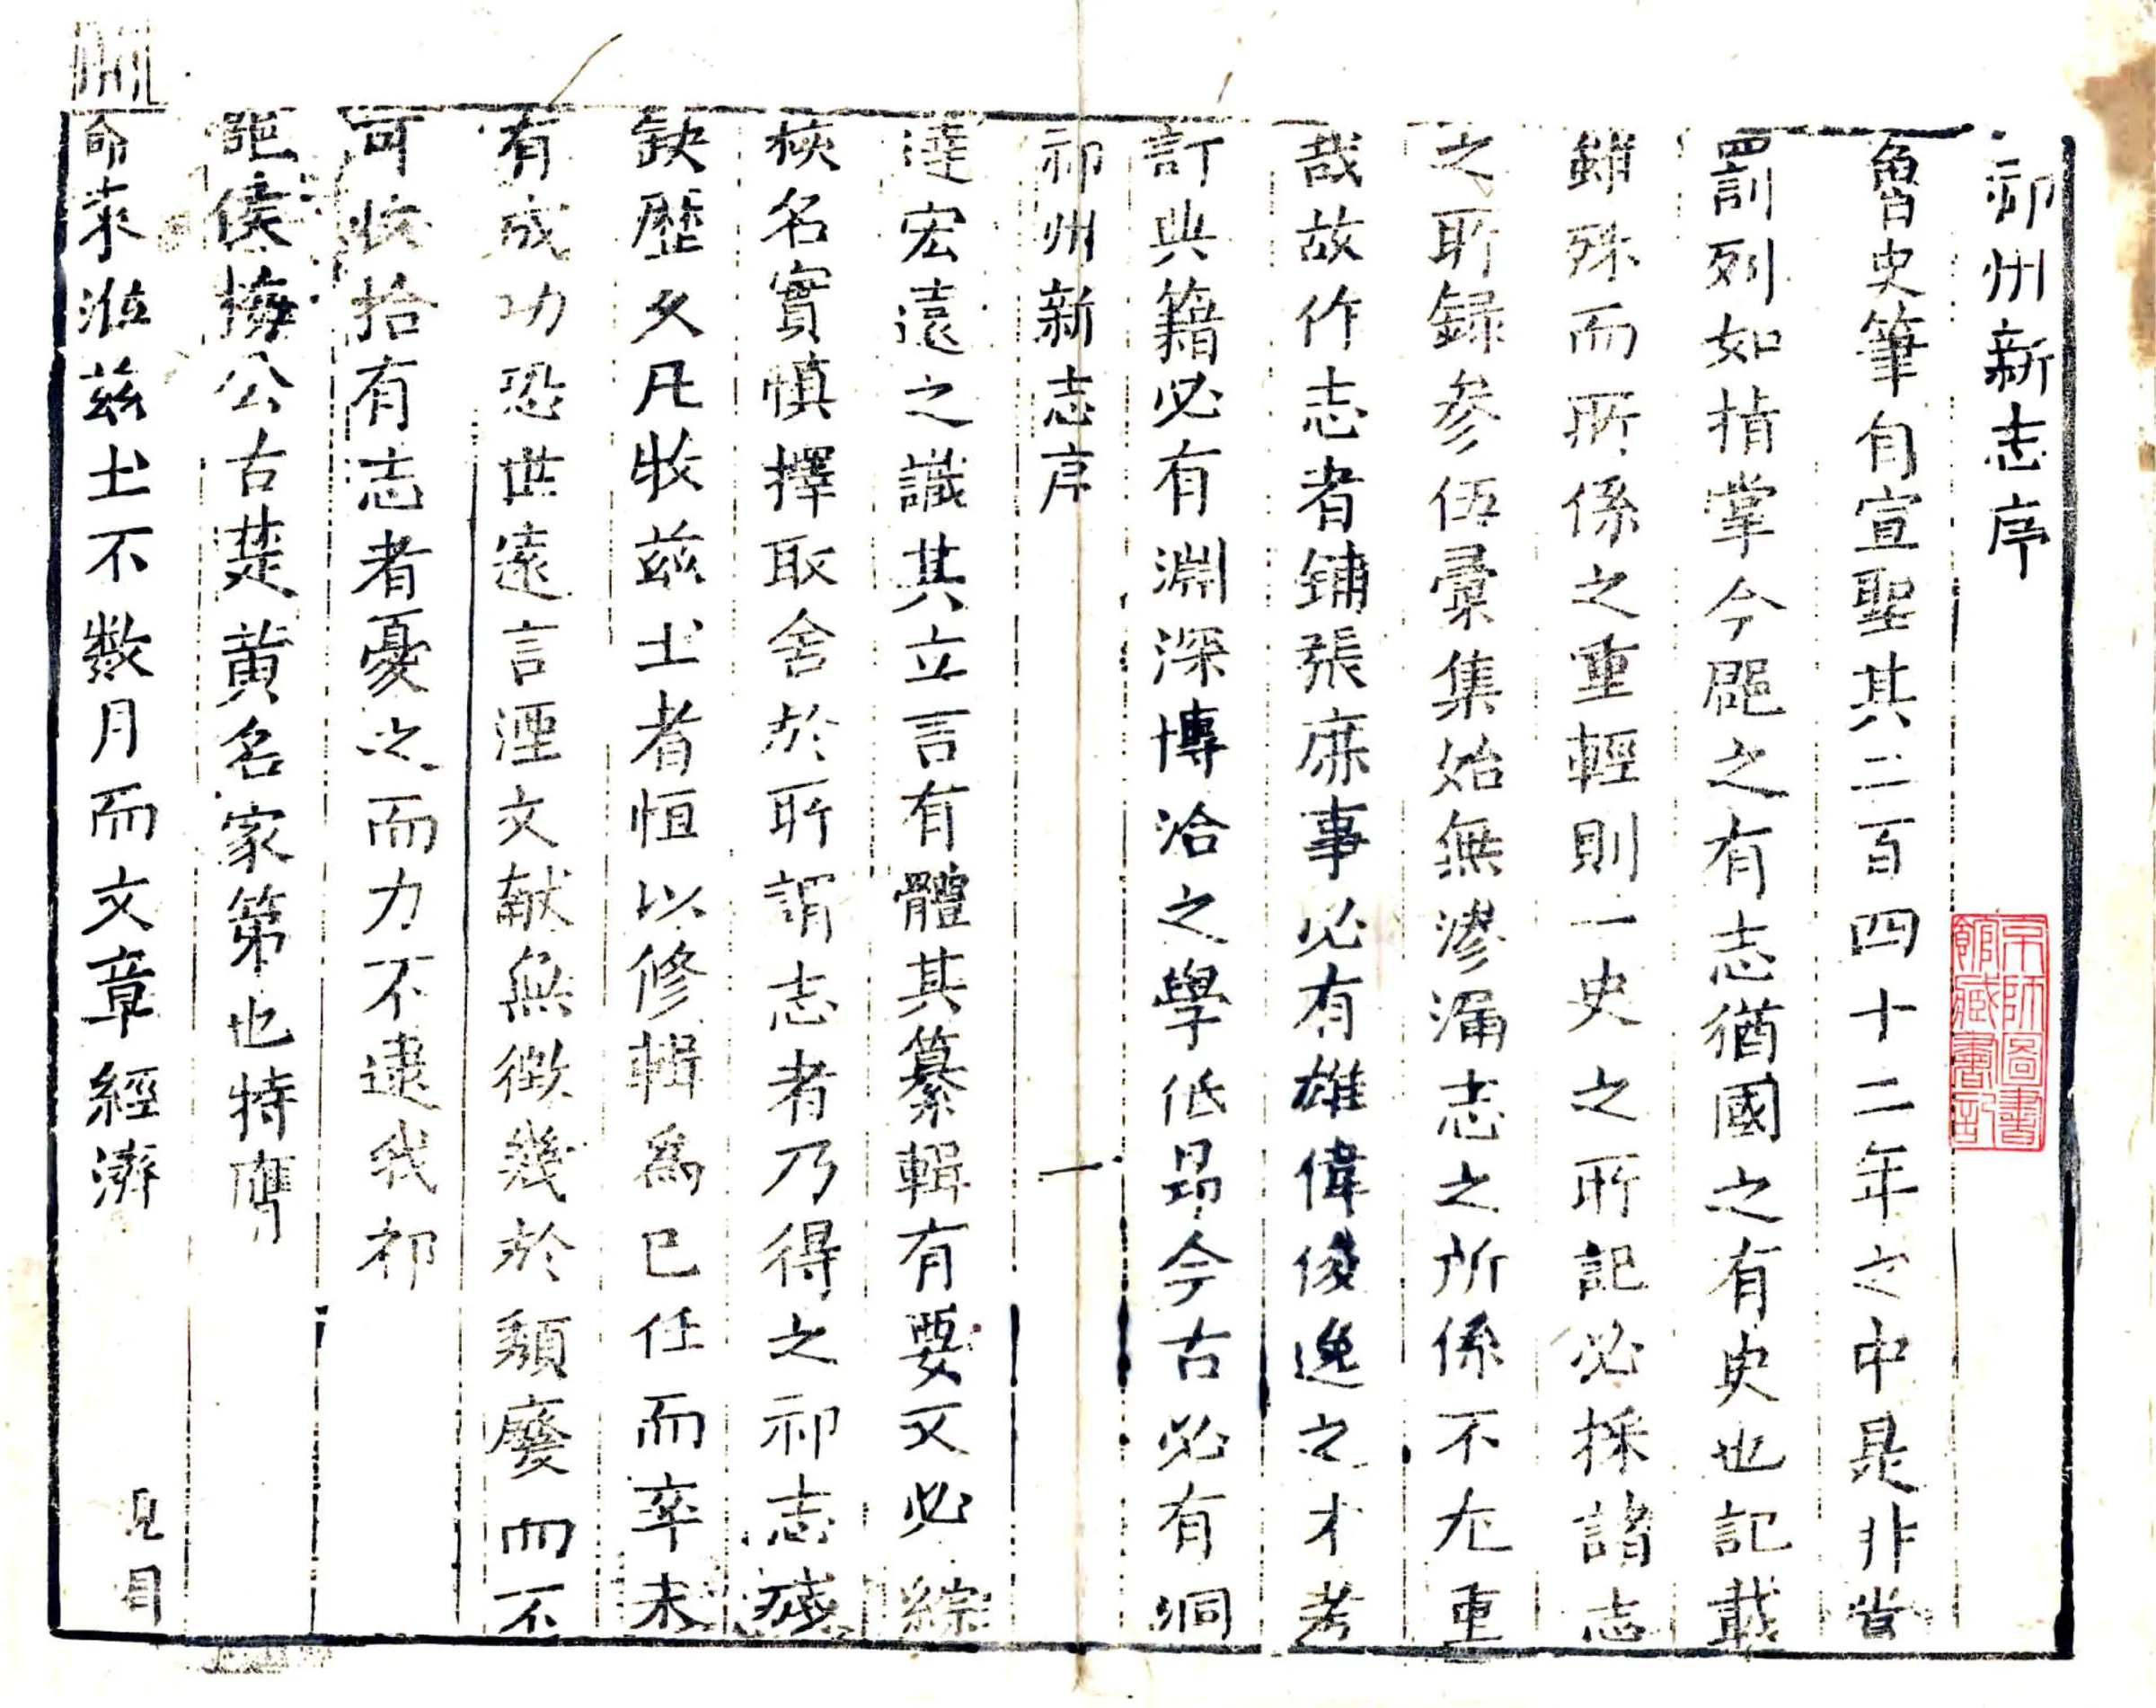 祁州新志序
魯史筆自宣聖其二百四十二年之中是非賞
罰列如指掌今郡之有志猶國之有史也記載
雖殊而所係之重輕則一史之所記必採諸志
之所録参伍彚集始無滲漏志之所係不尤重
哉故作志者鋪張庶事必有雄偉俊逸之才考
訂典籍必有淵深博洽之學低昂今古必有洞
祁州新志序
一
達宏遠之識其立言有體其纂輯有要文必綜
核名實慎擇取舍於所謂志者乃得之祁志殘
缺歷久凡牧兹土者恒以修輯為已任而率未
有成功恐世遠言湮文献無徴幾於頽廢而不
可收拾有志者憂之而力不逮我祁
侯公古楚黄名家第也特膺
命来涖兹土不數月而文章經濟
見目
京師圖書
館藏書記